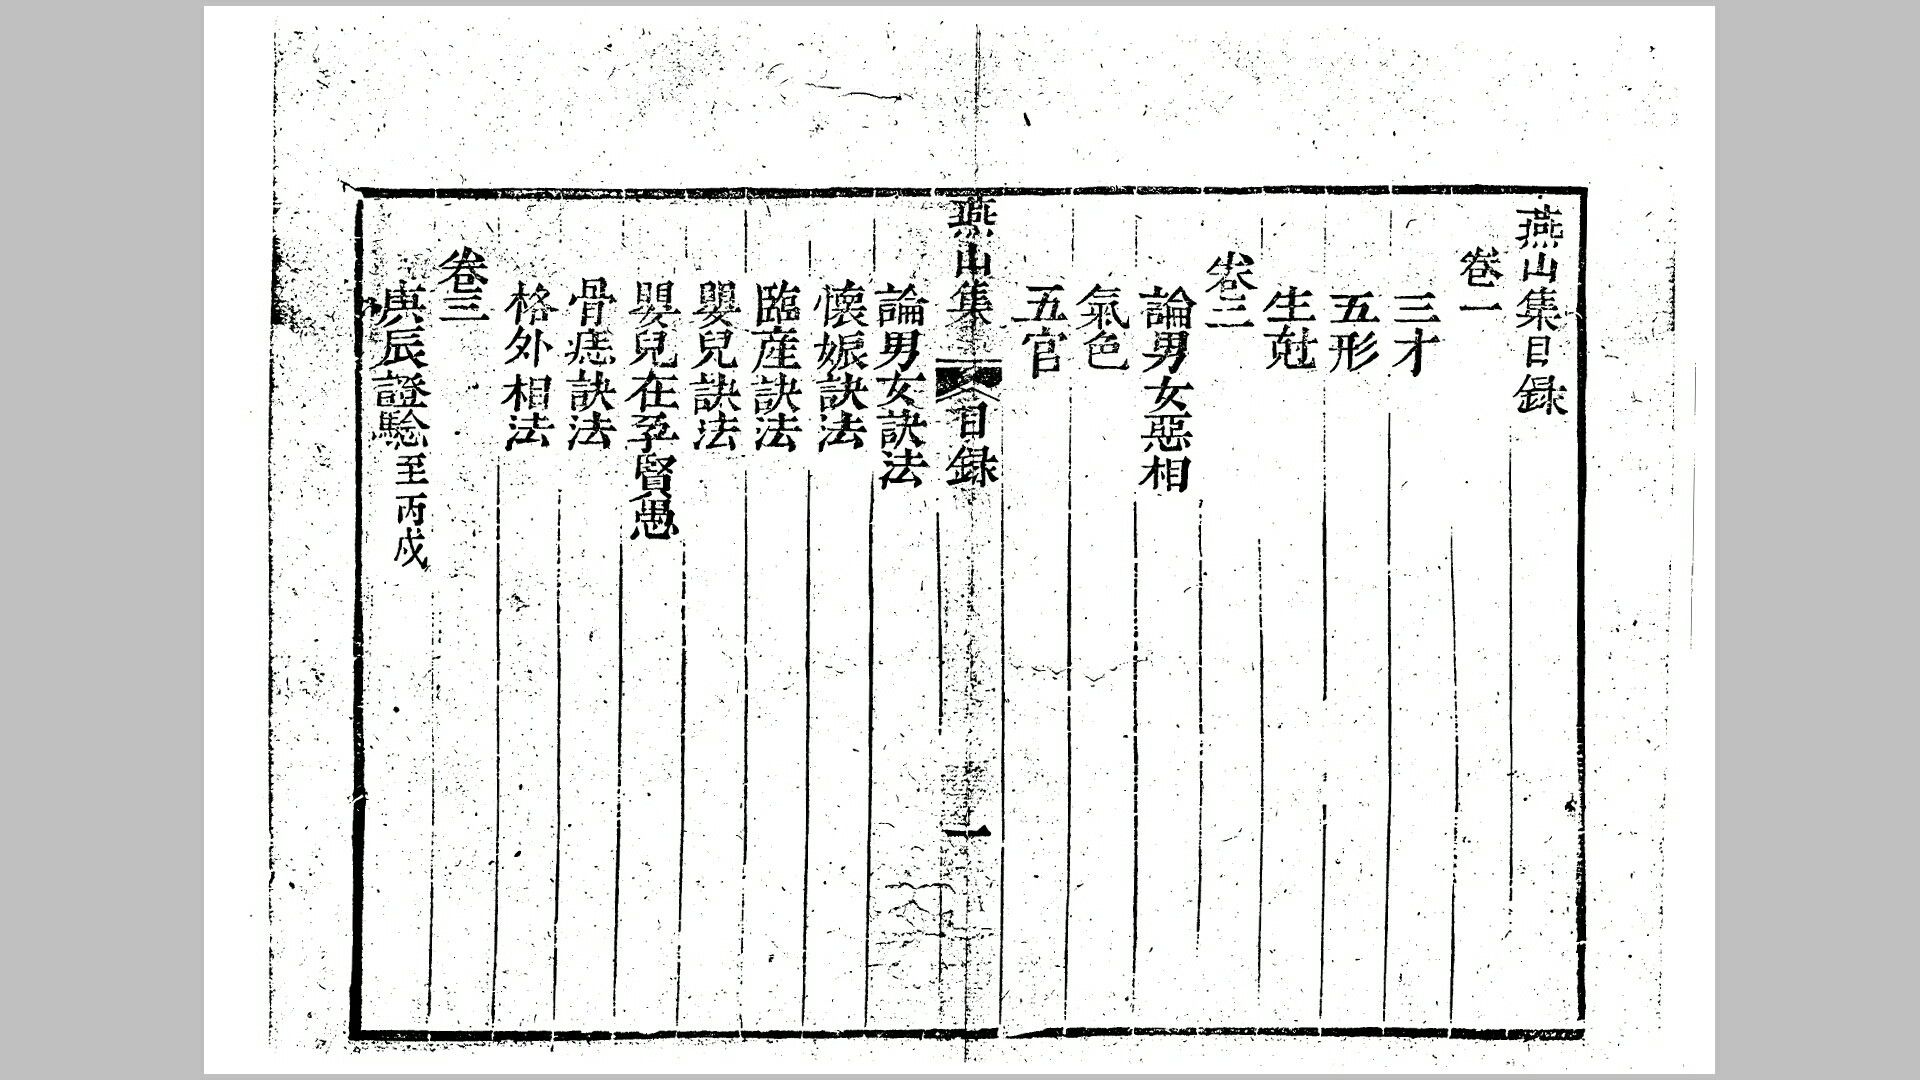 燕山集目録
卷一
三才
五形
生尅
卷二
論男女惡相
氣色
五官
燕山集
目録
一
論男女訣法
懷娠訣法
臨産訣法
嬰兒訣法
嬰兒在孕賢愚
骨痣訣法
格外相法
卷三
庚辰證驗至丙戌